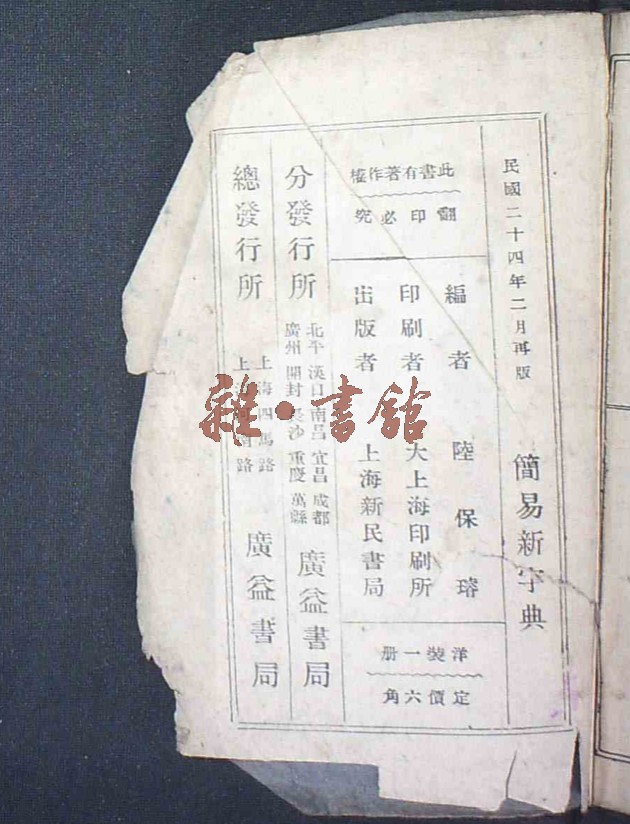 民國二十四年二月再版
簡易新字典
此書有著作權
翻印必究
編者 陸保璿
印刷者 大上海印刷所
出版者 上海新民書局
洋裝一册
定價六角
分發行所
北平 漢口 南昌 宜昌 成都
廣州 開封 長沙 重慶 萬縣
廣益書局
總發行所
上海四馬路
上海 路
廣益書局
雜·書館